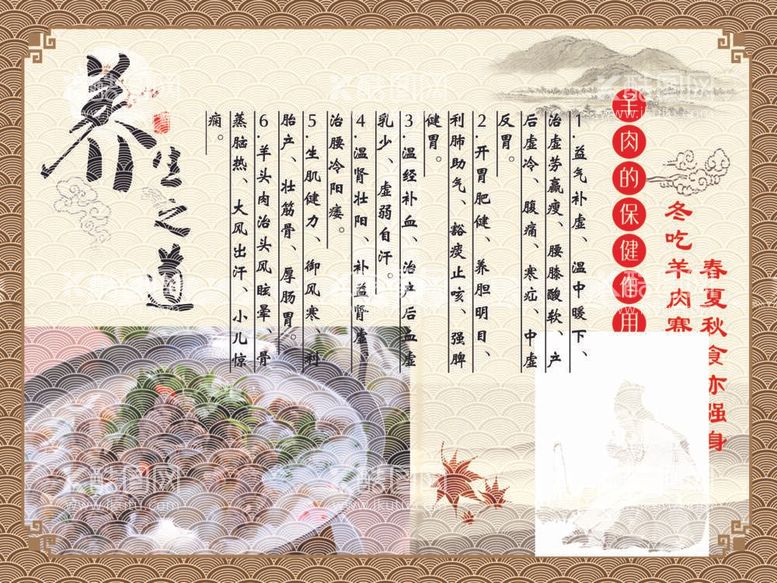 春夏秋食亦强身
冬吃羊肉赛
羊肉的保健作用
1.益气补虚、温中暖下、
治虚劳羸瘦、腰膝酸软、产
后虚冷、腹痛、寒疝、中虚
反胃。
2.开胃肥健、养胆明目、
利肺助气、豁痰止咳、强脾
健胃。
3.温经补血、治产后血虚
乳少、虚弱自汗。
4.温肾壮阳、补益肾虚、
治腰冷阳痿。
5.生肌健力、御风寒、利
胎产、壮筋骨、厚肠胃。
6.羊头肉治头风眩晕、骨
蒸脑热、大风出汗、小儿惊
痫。
养生之道
酷图网